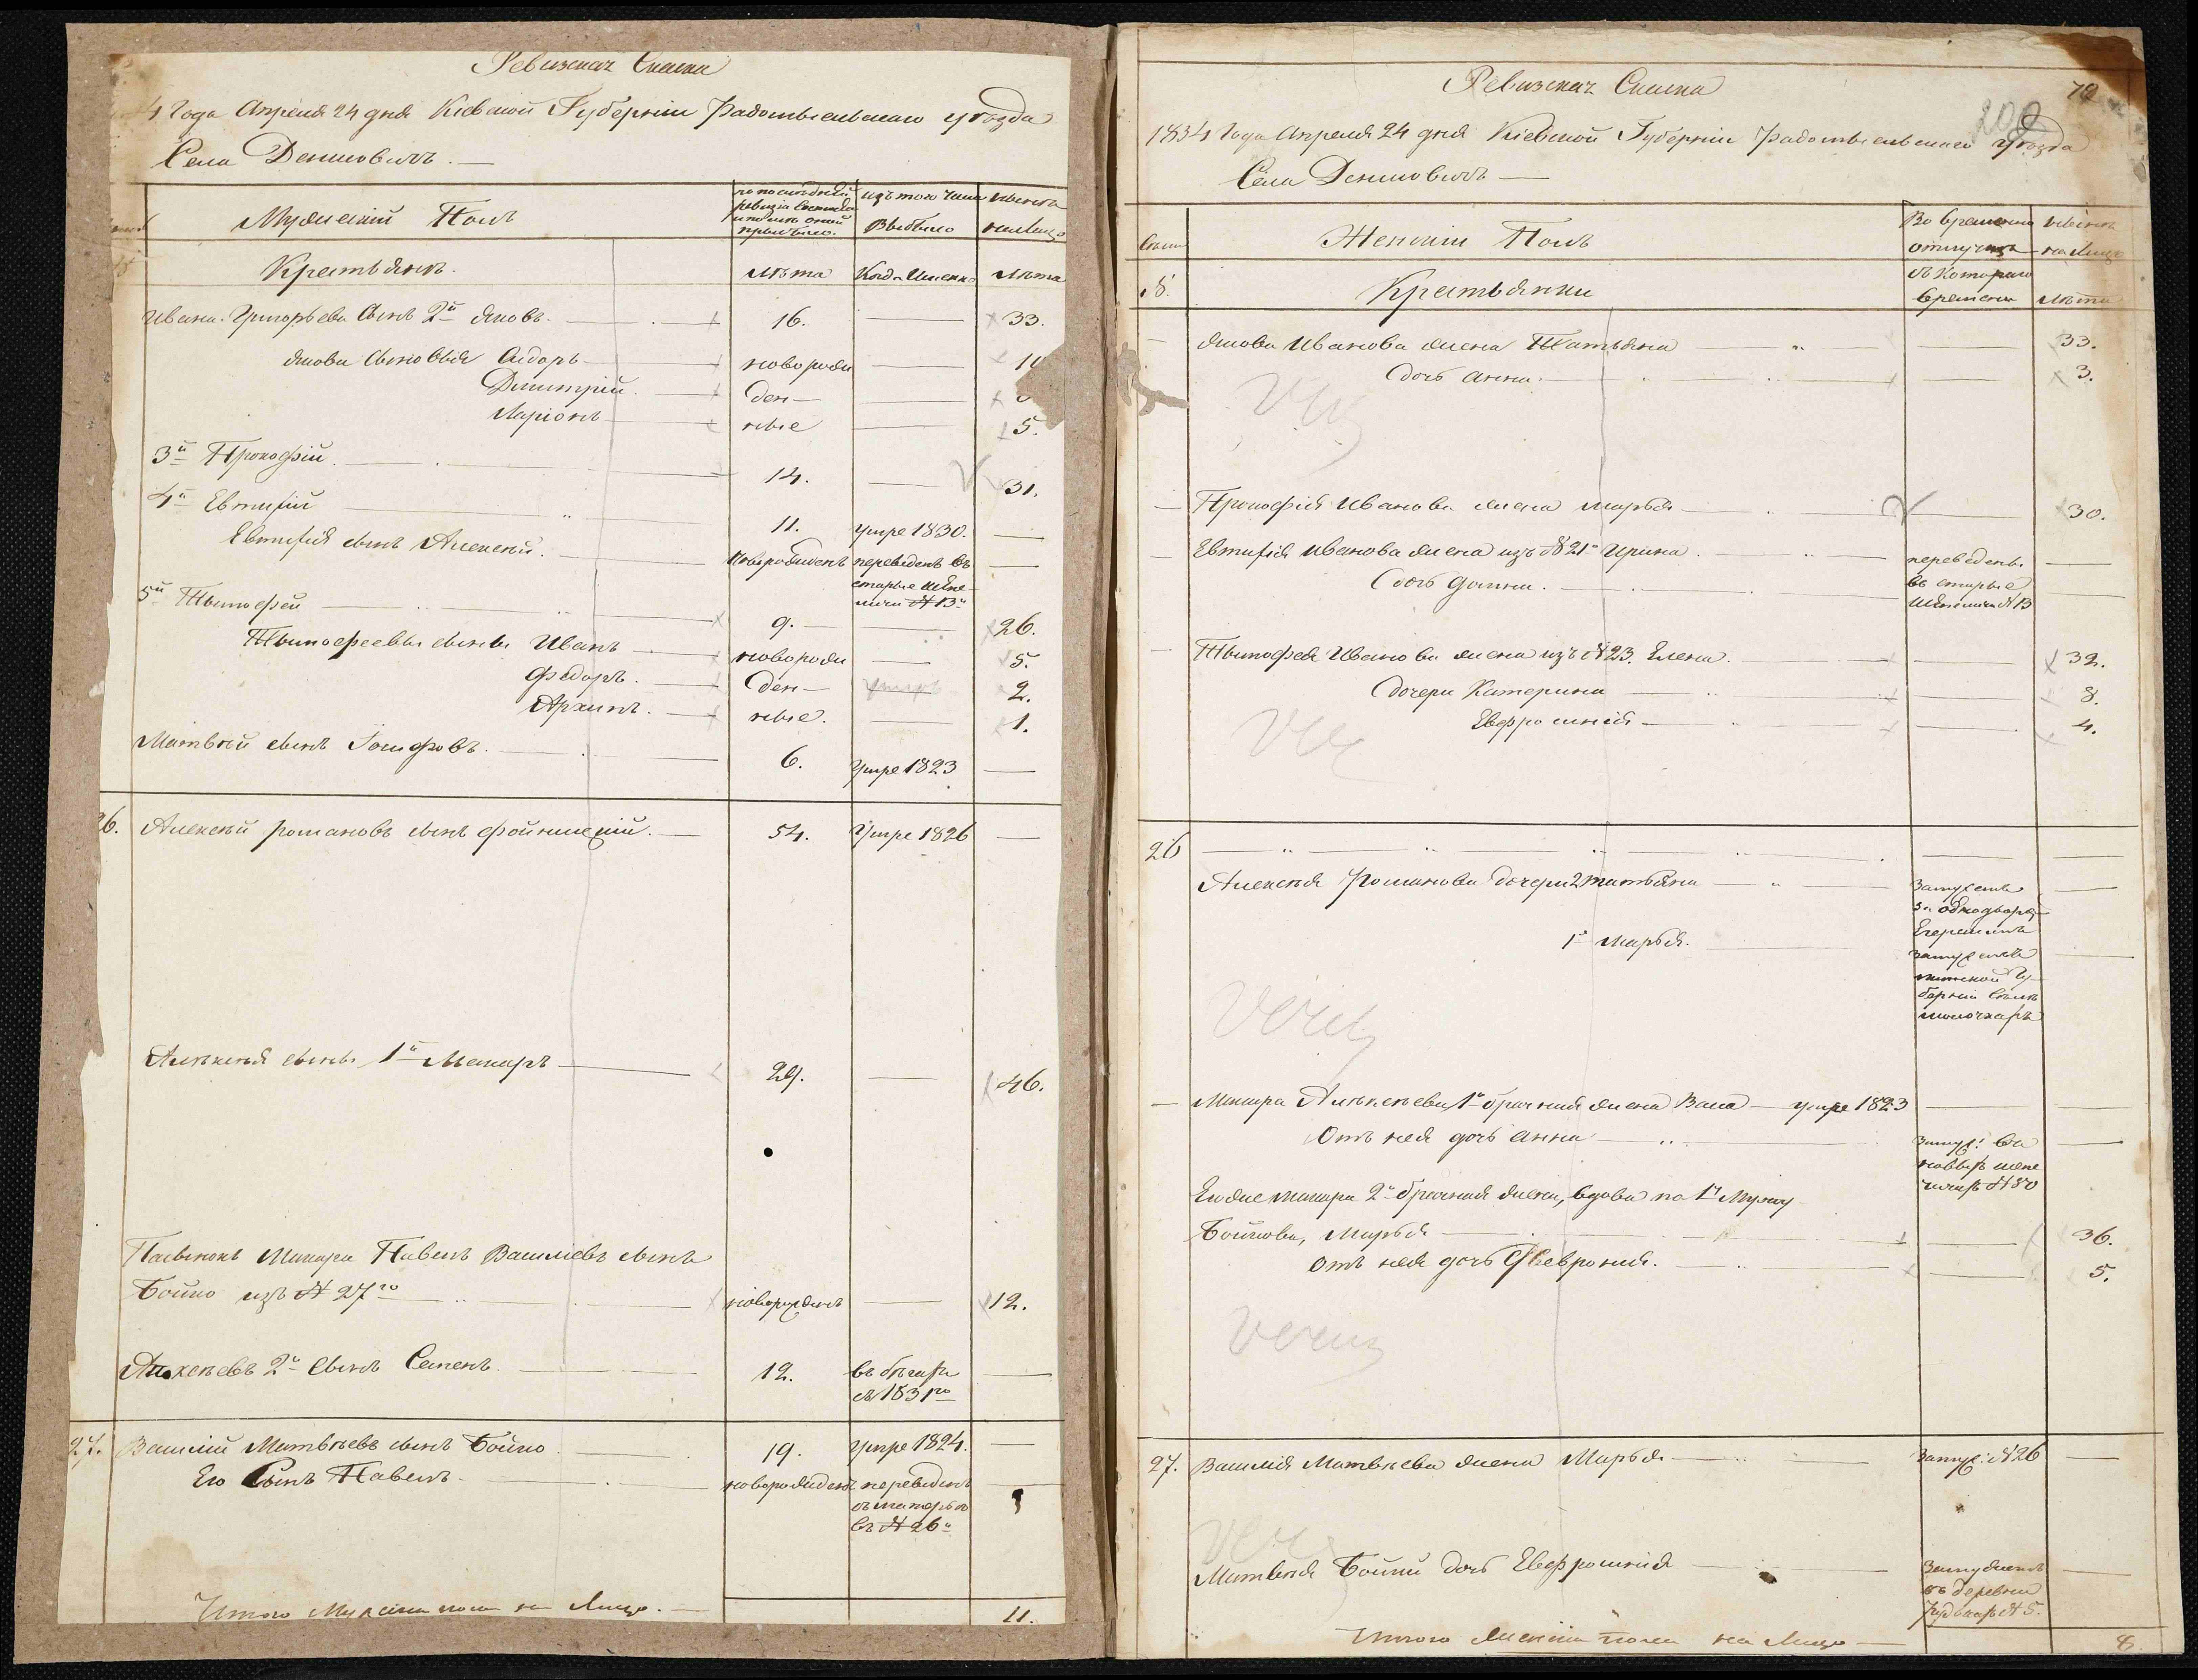 Ревизская Сказка
4 Года Апреля 24 дня Кіевской Губерніи Радомысльскаго уѣзда
Села Денисовичъ.
Мужескій Полъ
по послѣдней ревизіи состояло и после оной прибыло.
изъ того числа Выбыло
нынѣ на лицо
Крестьянъ.
лѣта
Когда Именно
лѣта
Ивана Григорьева Сынъ 2й Яковъ. 16. 33.
Якова Сыновья Сидоръ новорож
Димитрій ден
Ларіонъ ные 5.
3й Прокофій. 14. 31.
4й Евтихій 11. умре 1830.
Евтихія сынъ Алексѣй. Новорожденъ переведенъ въ
старые Шепеличи № 13й
5й Тымофей 9. 26.
Тымофеевы сыны Иванъ новорож 5.
Федоръ. ден умеръ 2.
Архипъ. ные. 1.
Матвѣй сынъ Іосифовъ. 6. Умре 1823
26. Алексѣй романовъ сынъ 54. Умре 1826
Алексѣя сынъ 1й Макаръ 29. 46.
Пасынокъ Макара Павелъ Василіевъ сынъ
Бойко изъ № 27го новорожденъ 12.
Алексѣевъ 2й Сынъ Семенъ. 12. въ бѣгахъ
съ 1831го
27. Василій Матвѣевъ сынъ Бойко. 19. Умре 1824.
Его Сынъ Павелъ. новорожденъ переведенъ
съ матерью
въ № 26й
Итого Мужеска пола на Лицо. 11.
Ревизская Сказка
72
200
1834 Года Апреля 24 дня Кіевской Губерніи Радомысльскаго уѣзда
Села Денисовичъ
Семьи
Женскій Полъ
Во временной отлучкѣ
нынѣ на Лицо
№.
Крестьянки
съ Котораго времени
лѣта
Якова Иванова жена Татьяна 33.
дочь Анна. 3.
Прокофія Иванова жена марья 30.
Евтихія Иванова жена изъ № 21й Ирина. переведены
въ старые
Шепеличи № 13
дочь
Тымофея Иванова жена изъ № 23. Елена. 32.
дочери Катерина 8.
Евфросинія 4.
26
Алексѣя Романова дочери 2 татьяна Замужемъ
за однодворц
1я Марья. замужемъ
Губерніи
Макара Алексѣева 1й брачная жена Васа умре 1823
Отъ нея дочь Анна замуж: въ
новыхъ шепеличахъ № 30
Его же макара 2й брачная жена, вдова по 1м Мужу
Бойкова, Марья 36.
отъ нея дочь Февронія. 5.
27. Василія Матвѣева жена Марья Замуж: № 26
Матвѣя Бойки дочь Евфросинія Замужемъ
въ деревни
№ 5.
Итого женска пола на Лицо 8